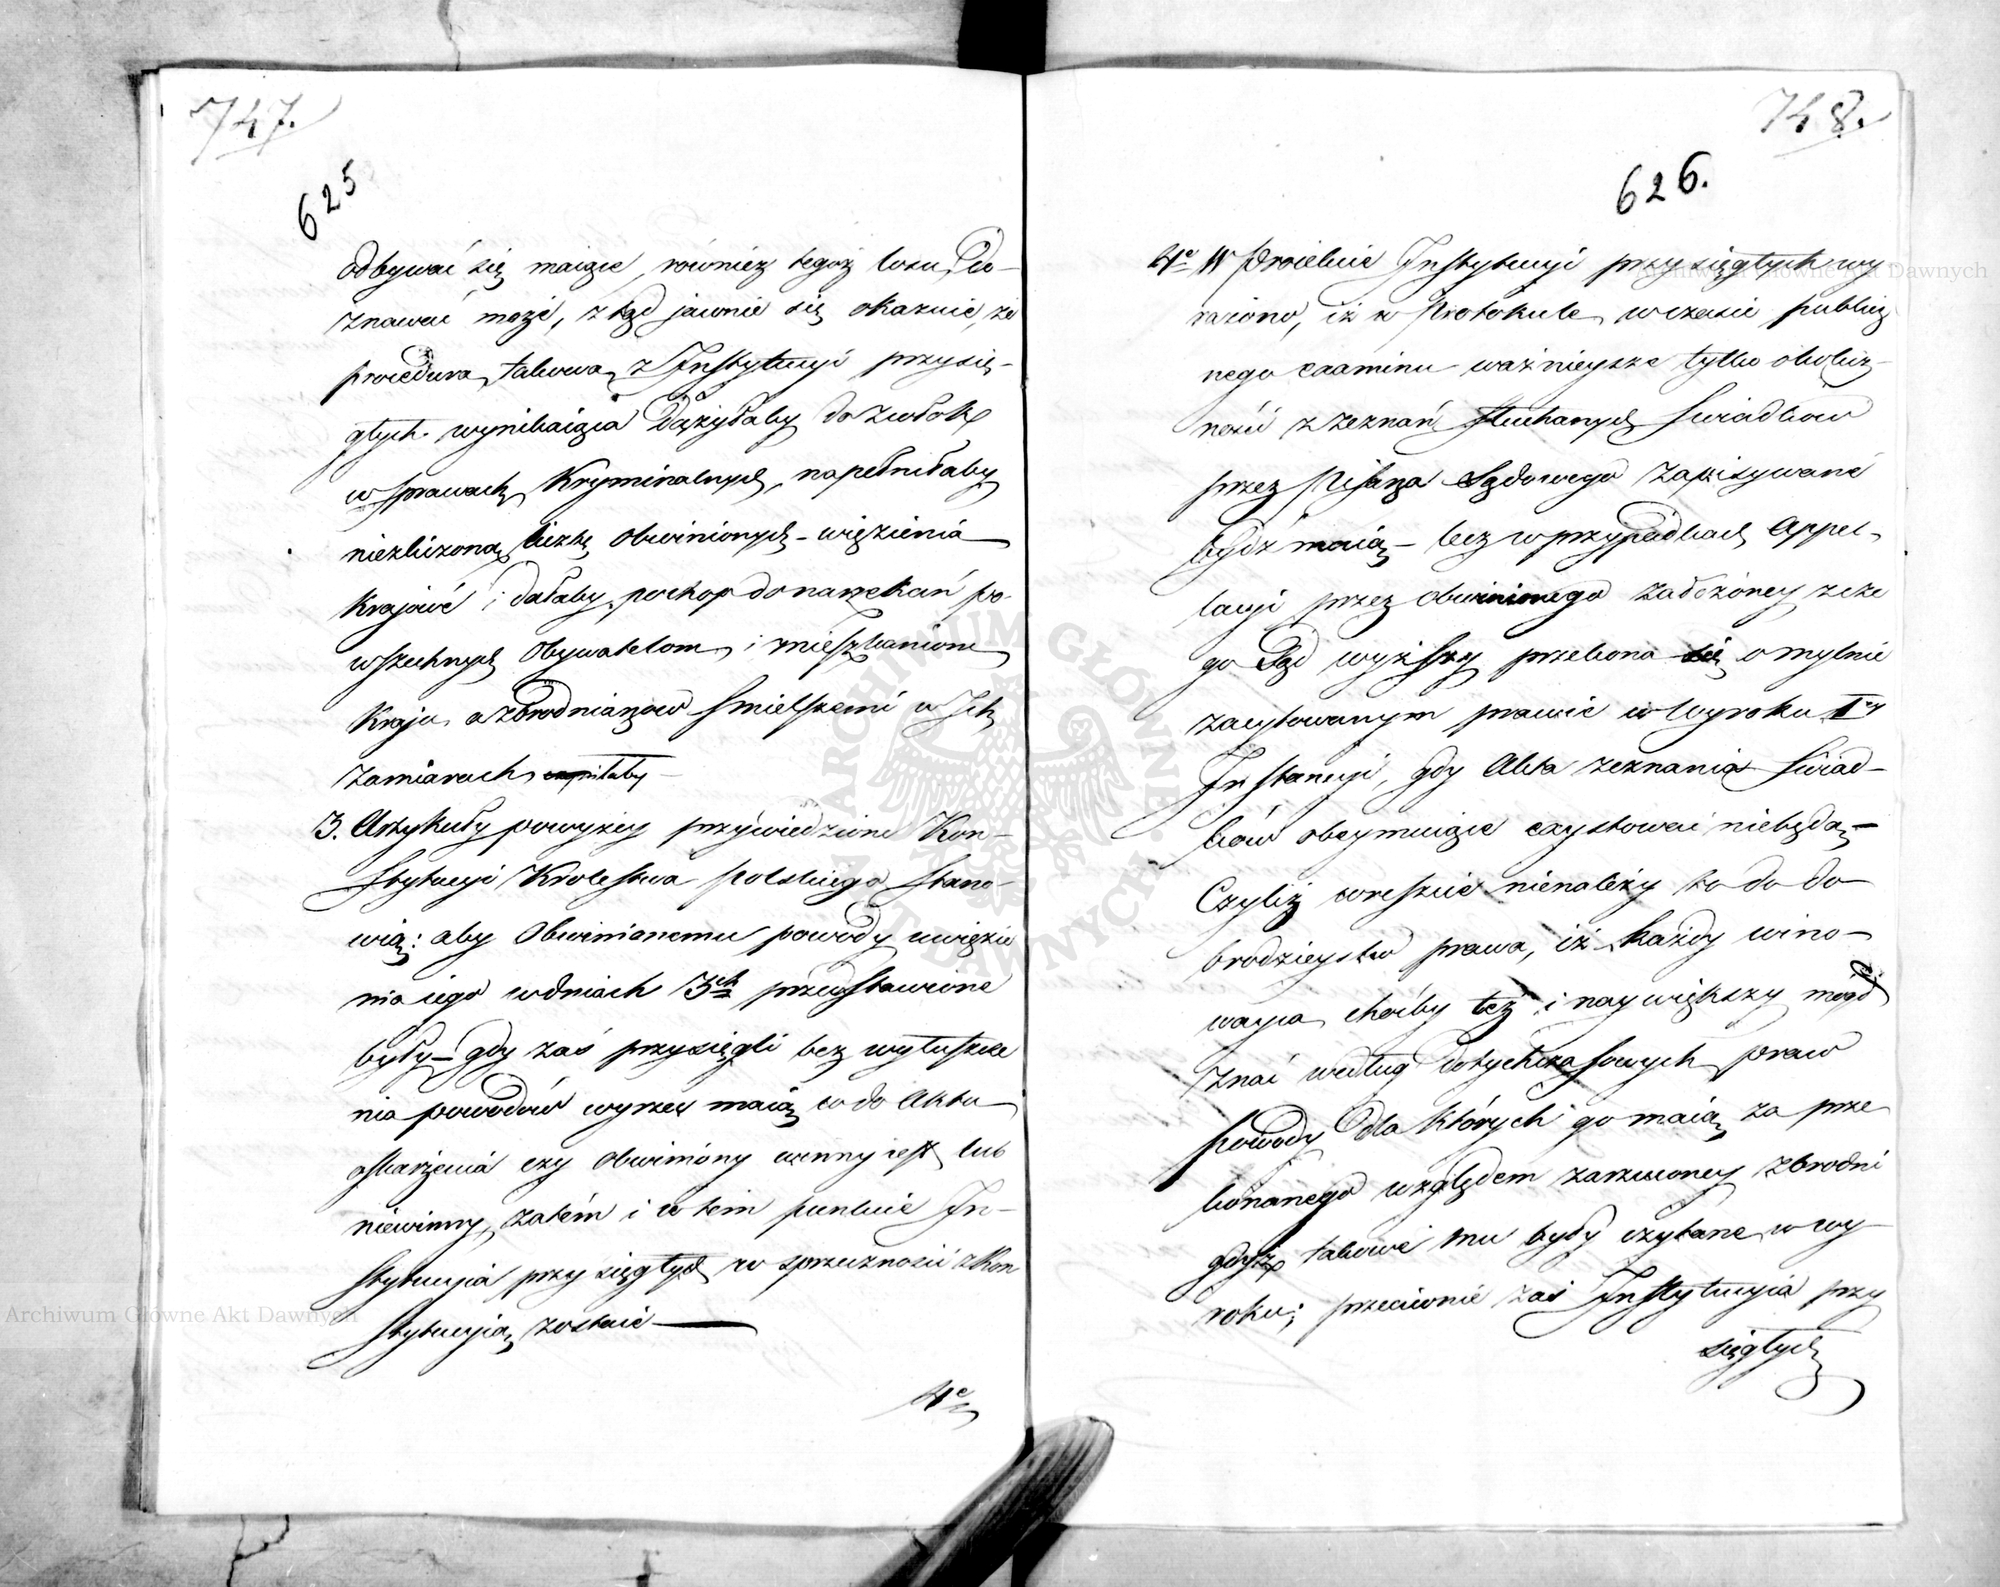 747.
625
odbywać się maiące, równiez tegoż losu do-
znawać może, ztąd jawnie się okazuie, że
procedura takowa z Instytucyi przysię-
głych wynikaiąca dążyłaby do zwłoki
w sprawach Kryminalnych, napełniłaby
niezliczoną liczbę Obwinionych więzienia
Krajowe i dałaby pochop do narzekań po-
wszechnych Obywatelom i mieszkańcom
Kraju a zbrodniarzow smielszemi w Ich
zamiarach czyniłaby
3. Artykuły powyżey przywiedzione Kon-
stytucyi Krolestwa Polskiego stano-
wią: aby Obwinionemu powody uwięzie
nia iego w dniach 3ch przedstawione
były – gdy zaś przysięgli bez wyłuszcze
nia powodów wyrzec maią co do Aktu
oskarżenia czy Obwiniony winny iest lub
niewinny, zatém i w tem punkcie In-
stytucyia przysięgłych w sprzeczności z Kon
stytucyią zostaie
4e
748.
626.
4e W Proiekcie Instytucyi przysięgłych wy
rażono, iż w Protokule w czasie publicz
nego examinu ważnieysze tylko okolicz-
ności z zeznań słuchanych świadków
przez Pisarza Sądowego zapisywane
bydź maią – lecz w przypadkach Appel-
lacyi przez obwinionego założoney z cze
go Sąd wyższy przekona się o mylnie
zacytowanym prawie w Wyroku Iey
Instancyi, gdy Akta zeznania świad-
ków obeymuiące exystować niebędą –
Czyliż wreszcie nienależy to do do
brodzieystw prawa, iż każdy wino-
wayca choćby też i naywiększy mógł
znać według dotychczasowych praw
powody dla których go maią za prze
konanego względem zarzuconey zbrodni
gdysz takowe mu były czytane w wy
roku; przeciwnie zaś Instytucyia przy
sięgłych
Archiwum Główne Akt Dawnych
Archiwum Główne Akt Dawnych
ARCHIWUM GŁÓWNE AKT DAWNYCH